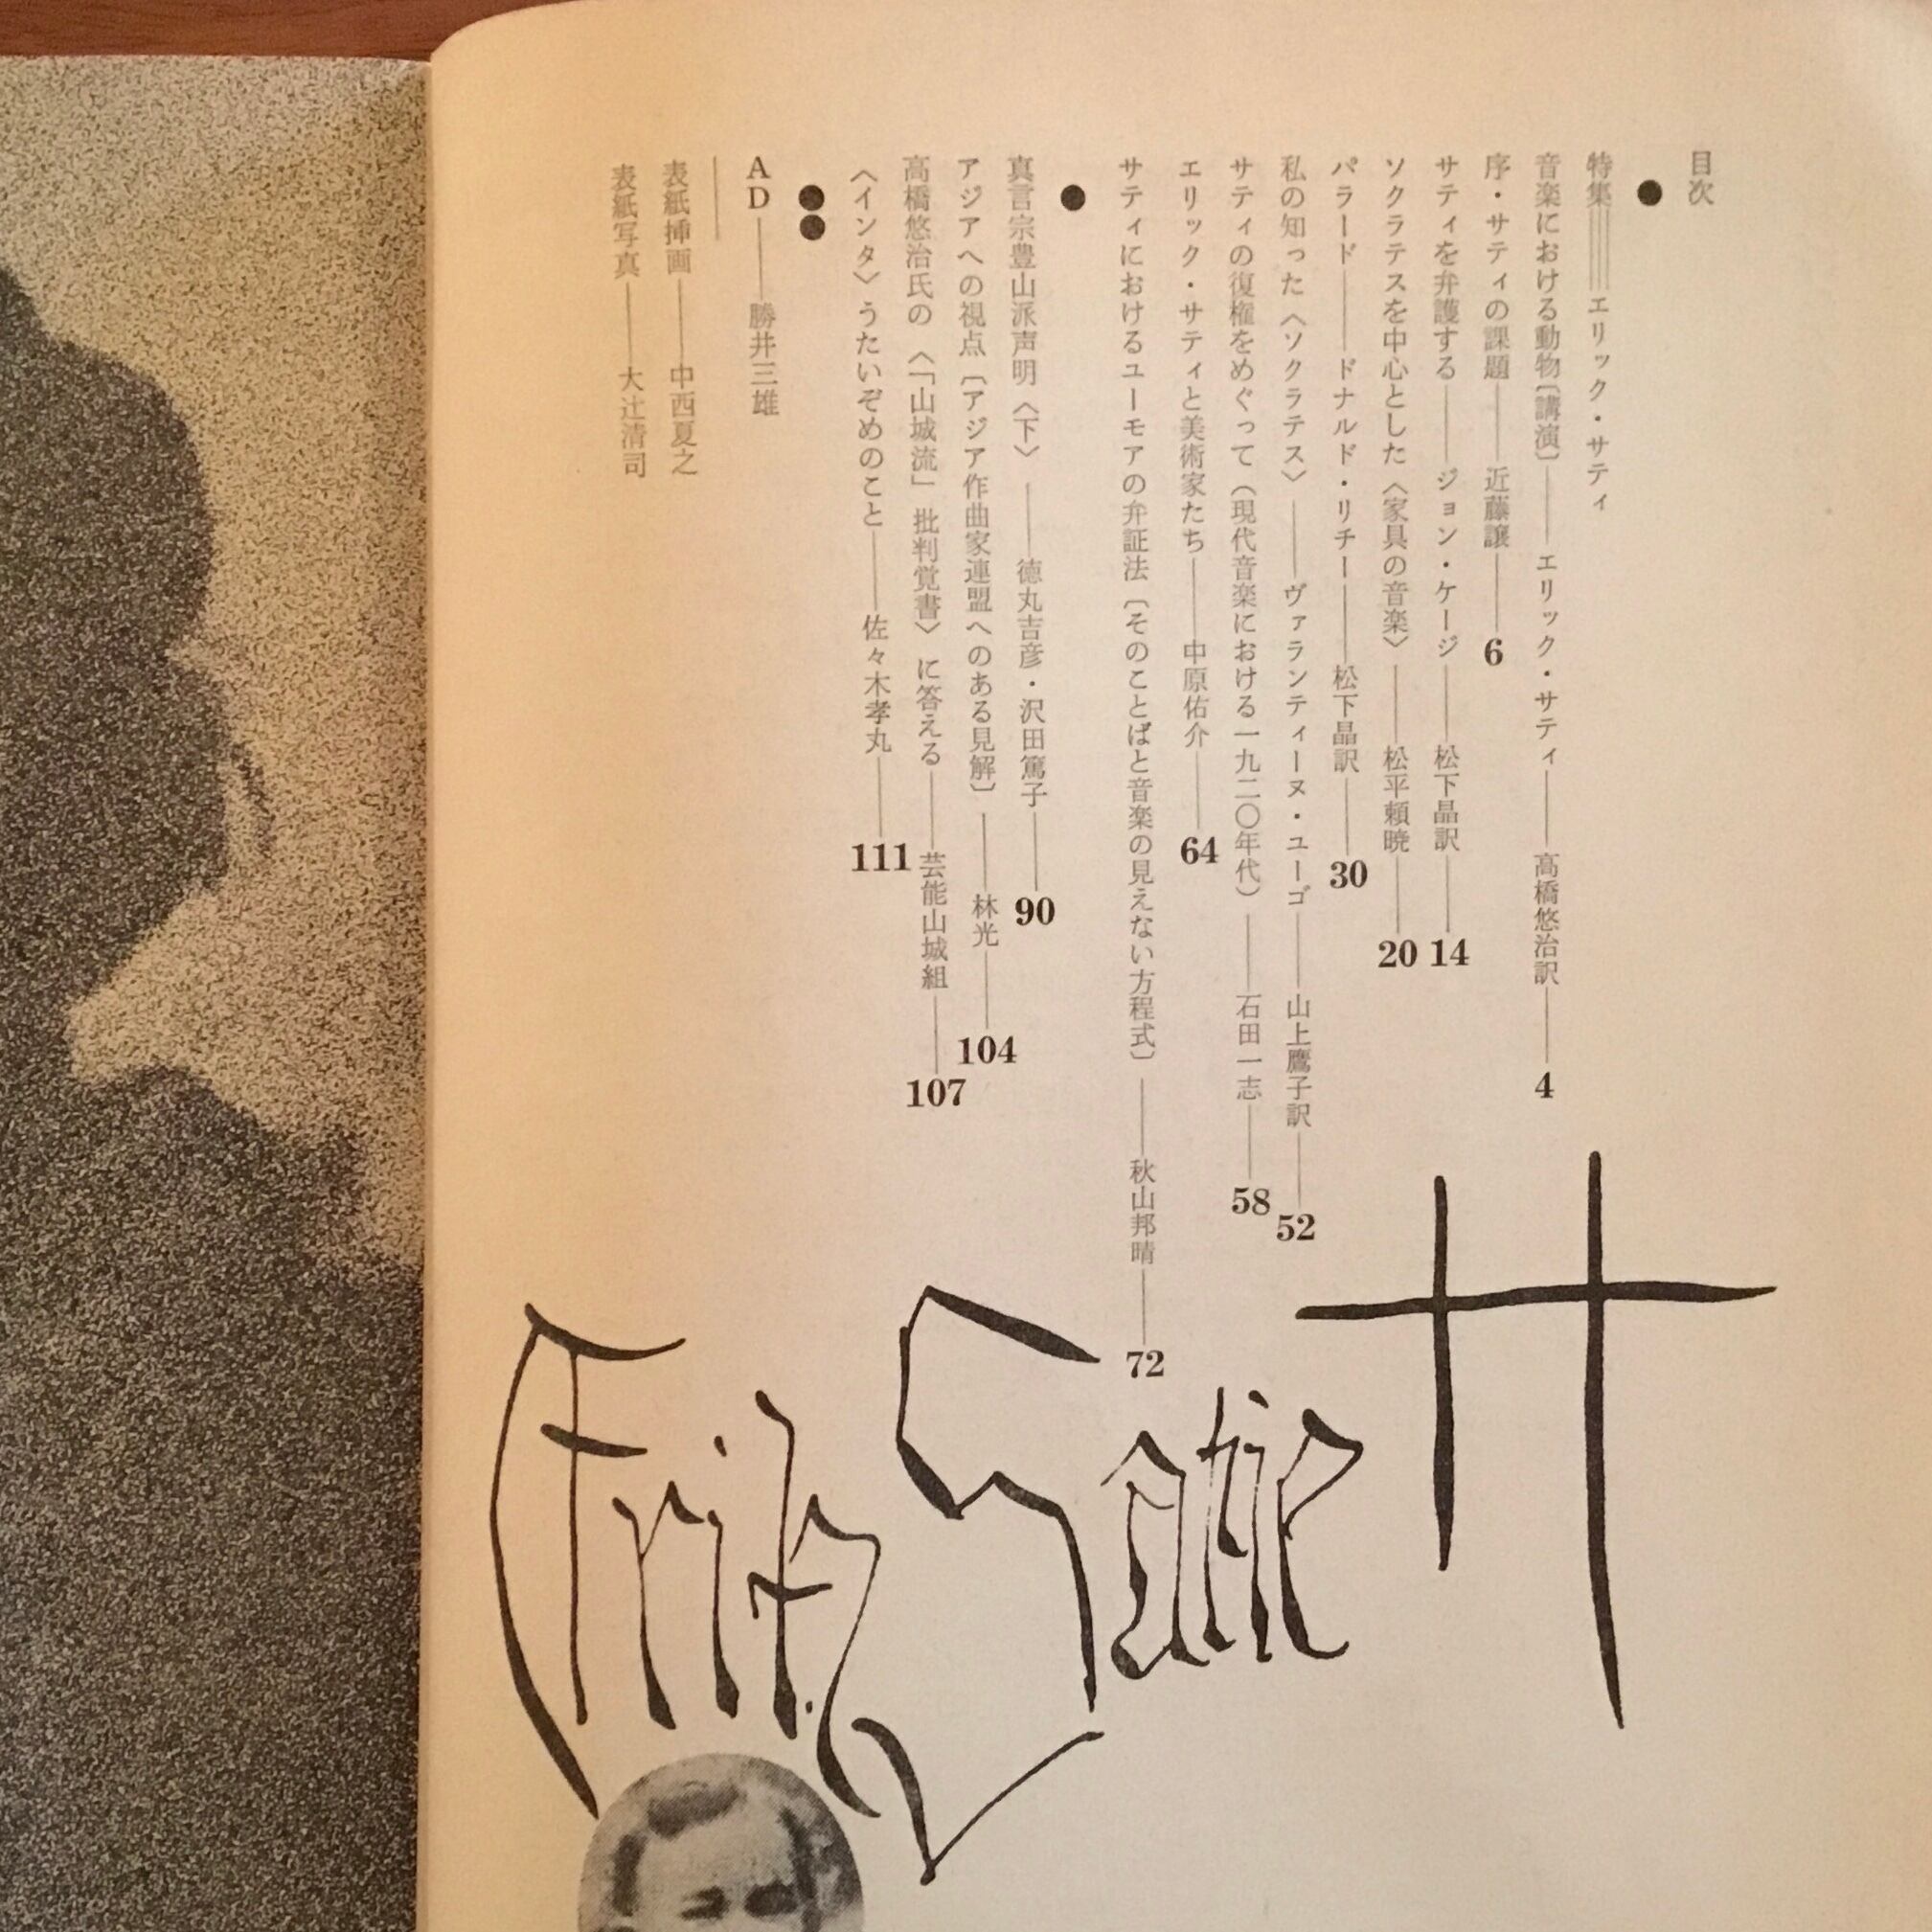 目次
●
特集 エリック・サティ
音楽における動物〔講演〕——エリック・サティ——高橋悠治訳——4
序・サティの課題——近藤譲——6
サティを弁護する——ジョン・ケージ——松下晶訳——14
ソクラテスを中心とした〈家具の音楽〉——松平頼暁——20
パラード——ドナルド・リチー——松下晶訳——30
私の知った〈ソクラテス〉——ヴァランティーヌ・ユーゴ——山上鷹子訳——52
サティの復権をめぐって（現代音楽における一九二〇年代）——石田一志——58
エリック・サティと美術家たち——中原佑介——64
サティにおけるユーモアの弁証法〔そのことばと音楽の見えない方程式〕——秋山邦晴——72
●
真言宗豊山派声明〈下〉——徳丸吉彦・沢田篤子——90
アジアへの視点〔アジア作曲家連盟へのある見解〕——林光——104
高橋悠治氏の〈「山城流」批判覚書〉に答える——芸能山城組——107
〈インタ〉うたいぞめのこと——佐々木孝丸——111
●●
AD——勝井三雄
表紙挿画——中西夏之
表紙写真——大辻清司
Erik Satie